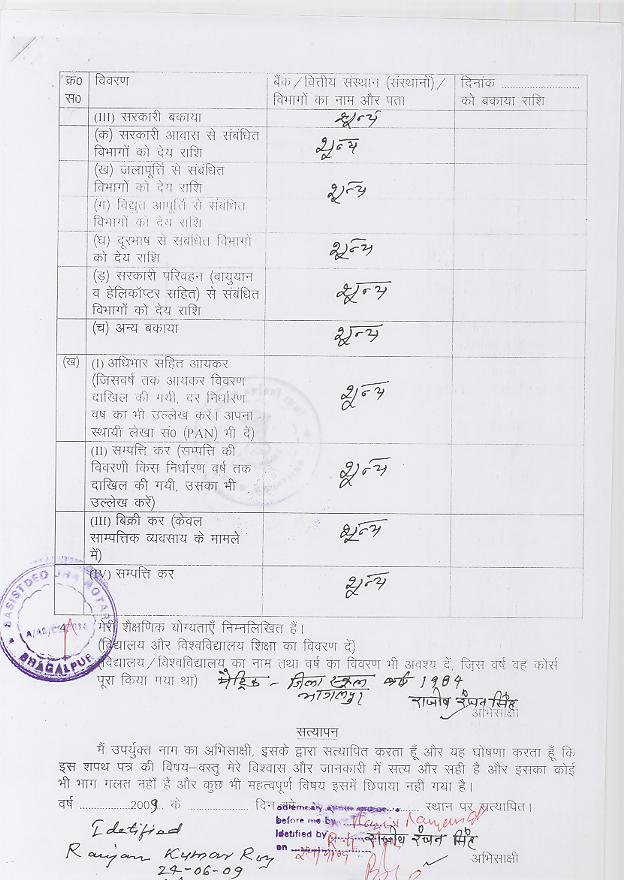 क्र० विवरण बैंक/वित्तीय संस्थान (संस्थानों)/ दिनांक ........................
स० विभागों का नाम और पता को बकाया राशि
(III) सरकारी बकाया शून्य
(क) सरकारी आवास से संबंधित शून्य
विभागों को देय राशि
(ख) जलापूर्ति से संबंधित शून्य
विभागों को देय राशि
(ग) विद्युत आपूर्ति से संबंधित
विभागों को देय राशि
(घ) दूरभाष से संबंधित विभागों शून्य
को देय राशि
(ड़) सरकारी परिवहन (वायुयान शून्य
व हेलिकॉप्टर सहित) से संबंधित
विभागों को देय राशि
(च) अन्य बकाया शून्य
(ख) (I) अधिभार सहित आयकर शून्य
(जिसवर्ष तक आयकर विवरण
दाखिल की गयी, दर निर्धारण
वष का भी उल्लेख करें। अपना
स्थायी लेखा सं० (PAN) भी दें)
(II) सम्पत्ति कर (सम्पत्ति की शून्य
विवरणी किस निर्धारण वर्ष तक
दाखिल की गयी, उसका भी
उल्लेख करें)
(III) बिक्री कर (केवल शून्य
साम्पत्तिक व्यवसाय के मामले
में)
(IV) सम्पत्ति कर शून्य
BASISTDEO JHA NOTARY
BHAGALPUR
4. मेरी शैक्षणिक योग्यताएँ निम्नलिखित हैं।
(विद्यालय और विश्वविद्यालय शिक्षा का विवरण दें)
(विद्यालय/विश्वविद्यालय का नाम तथा वर्ष का विवरण भी अवश्य दें, जिस वर्ष वह कोर्स
पूरा किया गया था) मैट्रिक - जिला स्कूल वर्ष 1984
भागलपुर राजीष रंजन सिंह
अभिसाक्षी
सत्यापन
मैं उपर्युक्त नाम का अभिसाक्षी, इसके द्वारा सत्यापित करता हूँ और यह घोषणा करता हूँ कि
इस शपथ पत्र की विषय-वस्तु मेरे विश्वास और जानकारी में सत्य और सही है और इसका कोई
भी भाग गलत नहीं है और कुछ भी महत्वपूर्ण विषय इसमें छिपाया नही गया है।
वर्ष ..................2009 के ............... दिन स्थान पर सत्यापित।
before me by
Idetified Idetified by राजीष रंजन सिंह
on
Ranjan Kumar Roy अभिसाक्षी
24-06-09